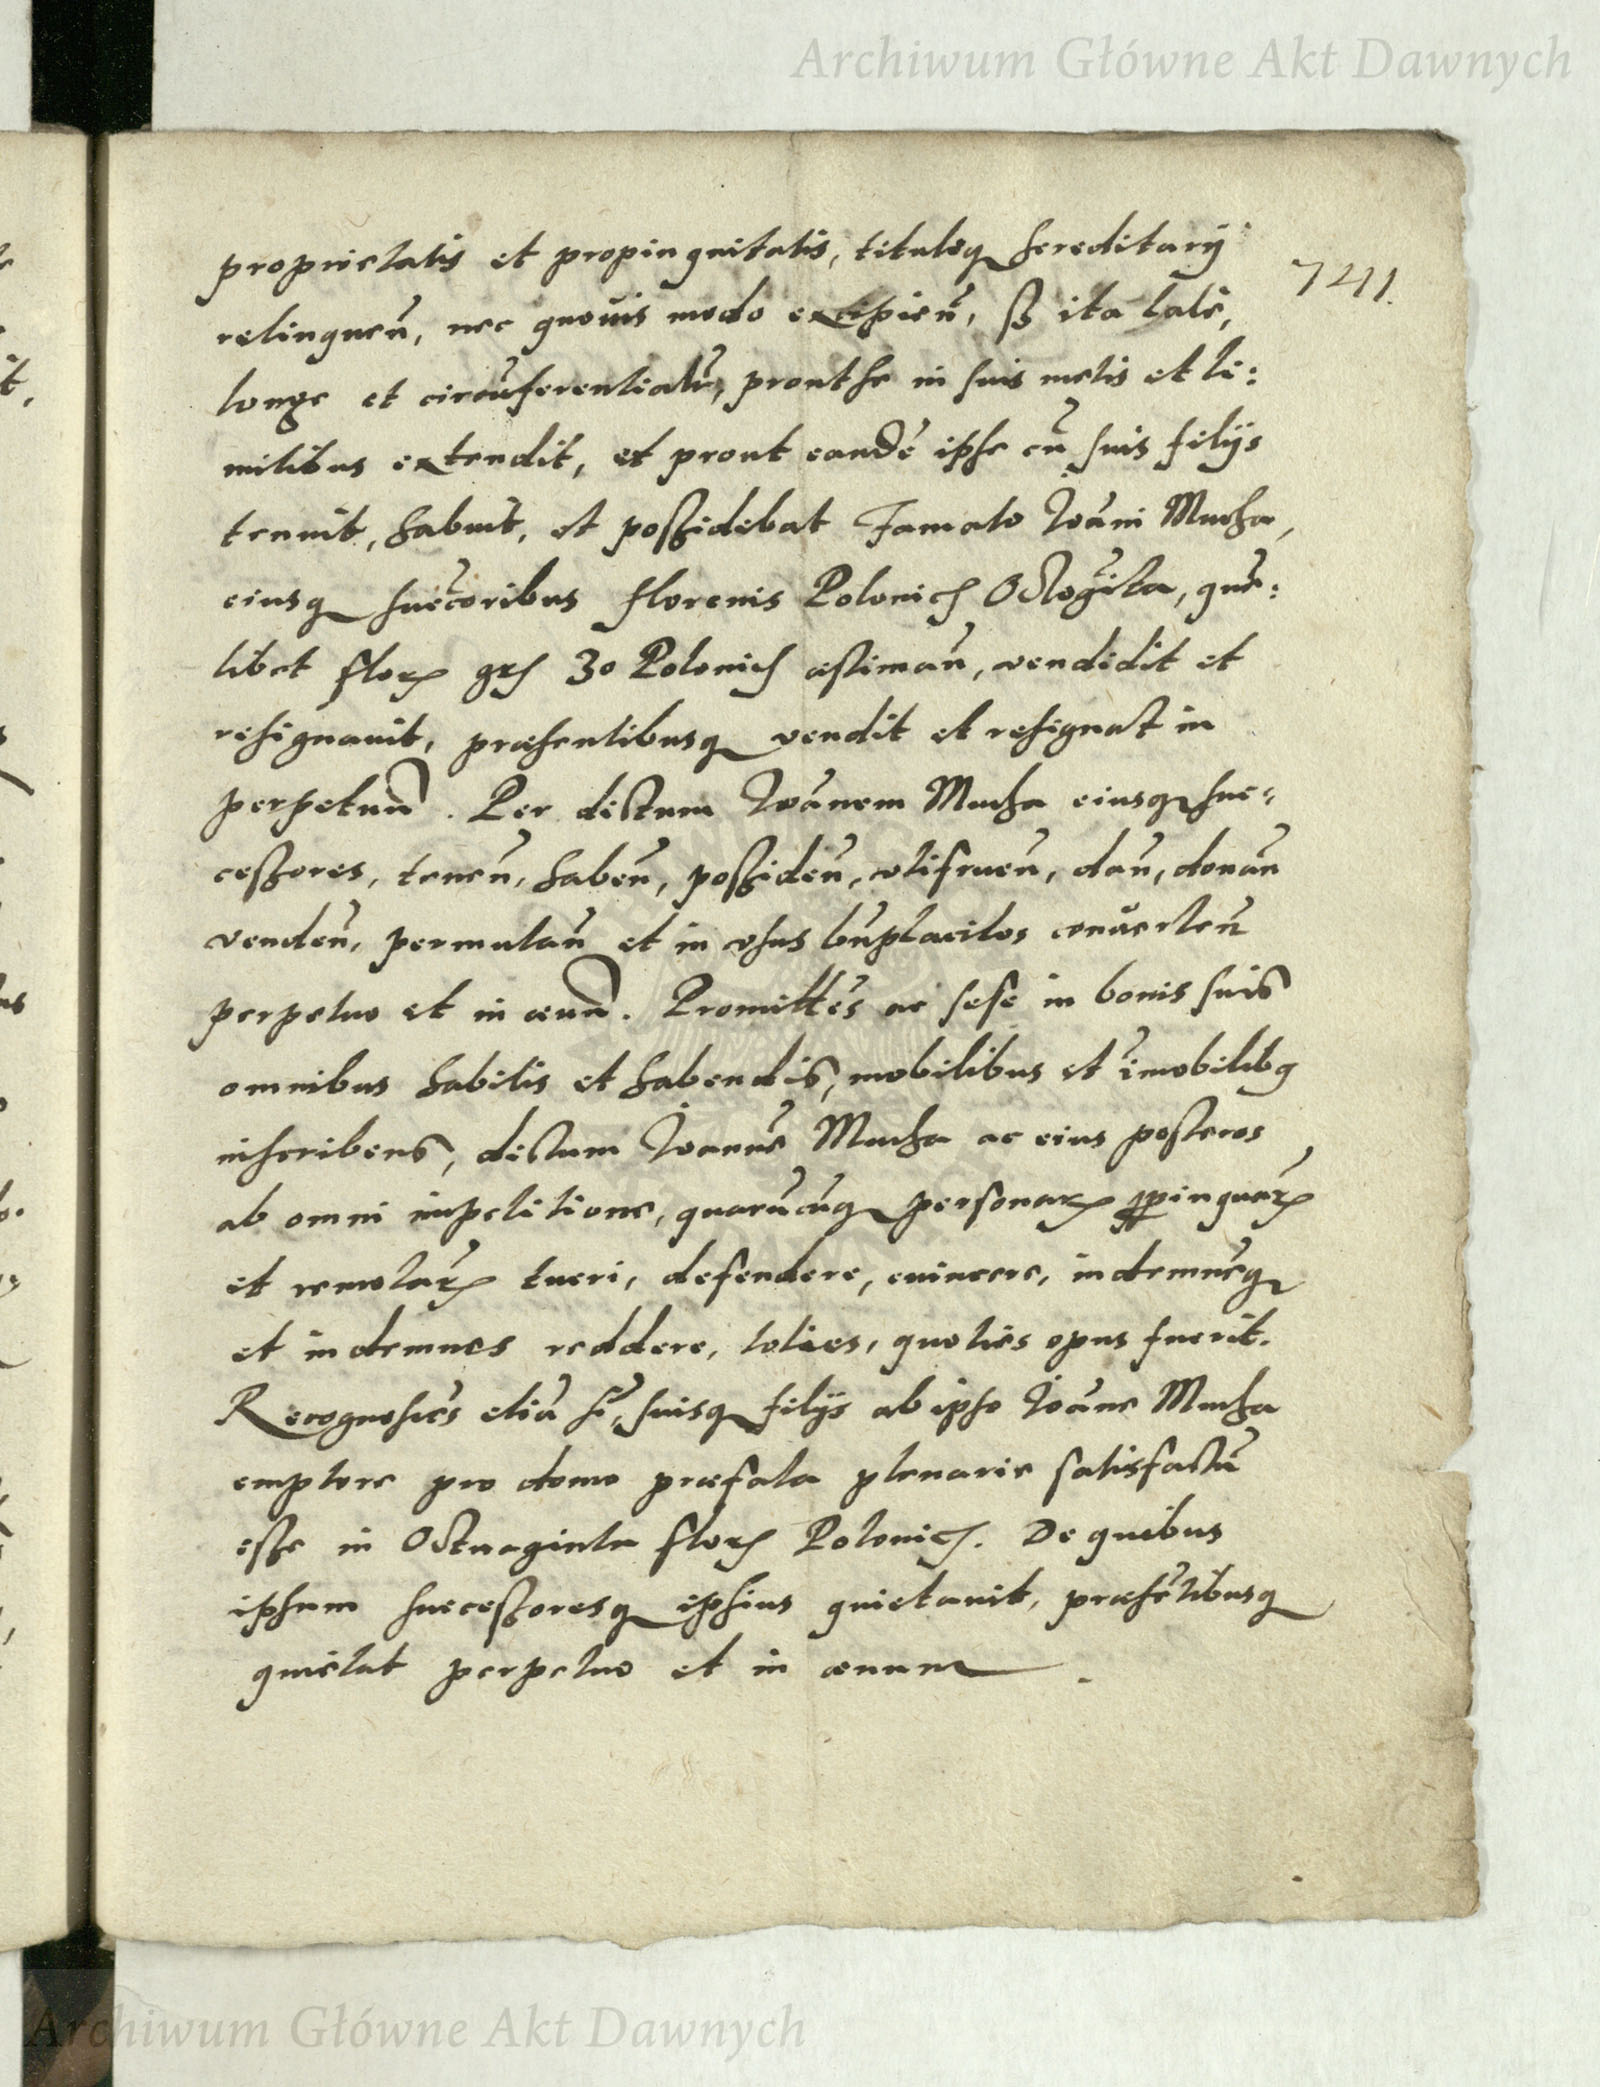 Archiwum Główne Akt Dawnych
proprietatis et propinquitatis, tituloq hereditarÿ
741.
relinqueñ, nec quovis modo excipieñ, sz ita late,
longe et circũferentialr, prout se in suis metis et li:
mitibus extendit, et prout eandē ipse cũ suis filÿs
tenuit, habuit, et possidebat Famato Ioãni Mucha,
eiusq succoribus florenis Polonic Octogīta, quē:
libet flor gr 30 Polonic æstimañ, vendidit et
resignauit, præsentibusq vendit et resignat in
perpetuũ. Per dictum Ioãnem Mucha eiusq suc:
cessores, teneñ, habeñ, possideñ, vtifrueñ, dañ, donañ
vendeñ, permutañ et in vsus bñplacitos conuerteñ
perpetuo et in æuũ. Promittēs ac sese in bonis suis
omnibus habitis et habendis, mobilibus et īmobilibq
inscribens, dictum Ioannē Mucha ac eius posteros
ab omni impetitione, quarũcũq personar ppinquar
et remotar tueri, defendere, euincere, indemnēq
et indemnes reddere, toties, quoties opus fuerit.
Recognoscēs etiã sī, suisq filÿs ab ipso Ioãne Mucha
emptore pro domo præfata plenarie satisfactũ
esse in Octuaginta flor Polonic. De quibus
ipsum successoresq ipsius quietauit, præsētibusq
quietat perpetuo et in æuum.
Archiwum Główne Akt Dawnych